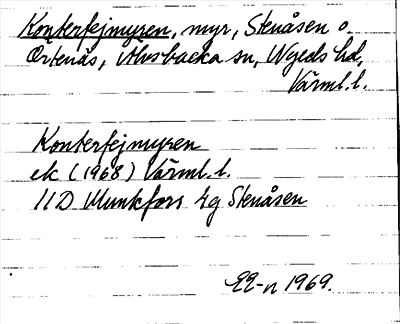 Konterfejmyren, myr, Stenåsen o.
Örtenäs, Alvsbacka sn, Nyeds hd,
Värml. l.
Konterfejmyren
ek (1968) Värml. l.
11D Munkfors 4g Stenåsen
EE-n 1969.